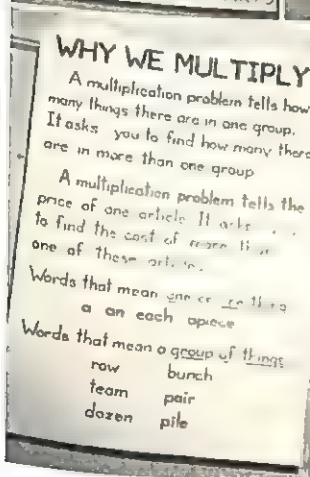 WHY WE MULTIPLY
A multiplication problem tells how
many things there are in one group.
It asks you to find how many there
are in more than one group
A multiplication problem tells the
price of one article It asks
to find the cost of more than
one of these
Words that mean one
a an each apiece
Words that mean a group of things
row bunch
team pair
dozen pile